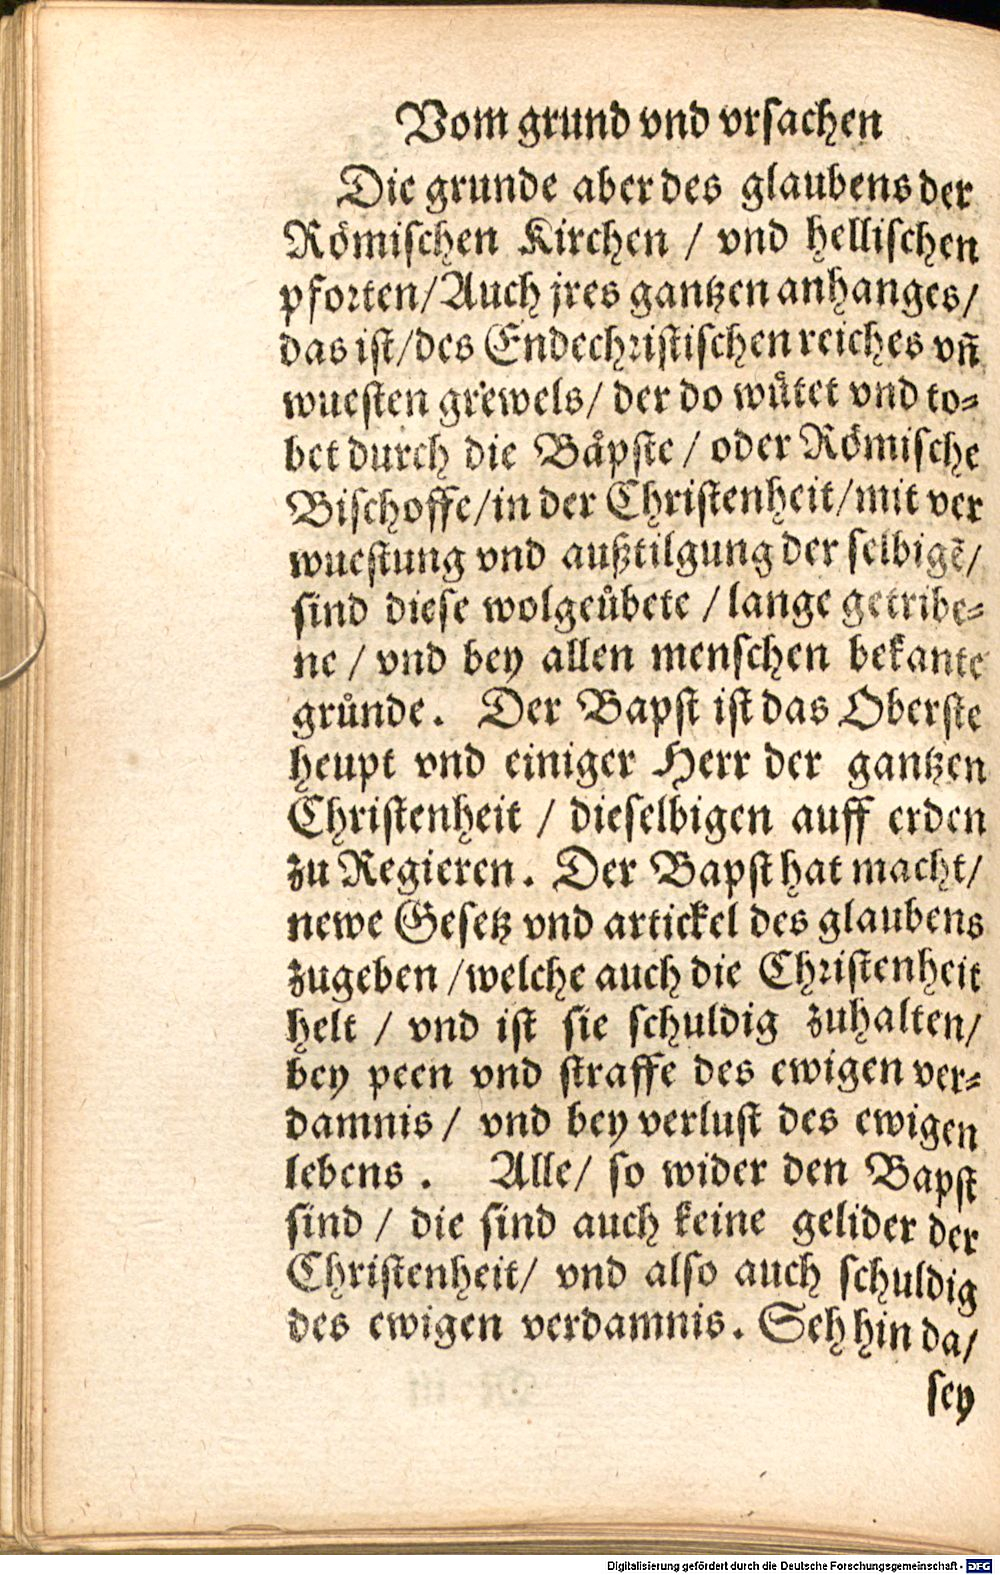 Vom grund vnd vrsachen
Die grunde aber des glaubens der
Römischen Kirchen / vnd hellischen
pforten/Auch jres gantzen anhanges/
das ist/des Endechristischen reiches vñ
wuesten grewels/ der do wütet vnd to-
bet durch die Bäpste / oder Römische
Bischoffe/in der Christenheit/mit ver
wuestung vnd außtilgung der selbigē/
sind diese wolgeübete / lange getribe-
ne / vnd bey allen menschen bekante
gründe. Der Bapst ist das Oberste
heupt vnd einiger Herr der gantzen
Christenheit / dieselbigen auff erden
zu Regieren. Der Bapst hat macht/
newe Gesetz vnd artickel des glaubens
zugeben /welche auch die Christenheit
helt / vnd ist sie schuldig zuhalten/
bey peen vnd straffe des ewigen ver-
damnis / vnd bey verlust des ewigen
lebens . Alle/ so wider den Bapst
sind / die sind auch keine gelider der
Christenheit/ vnd also auch schuldig
des ewigen verdamnis. Seh hin da/
sey
Digitalisierung gefördert durch die Deutsche Forschungsgemeinschaft - DFG